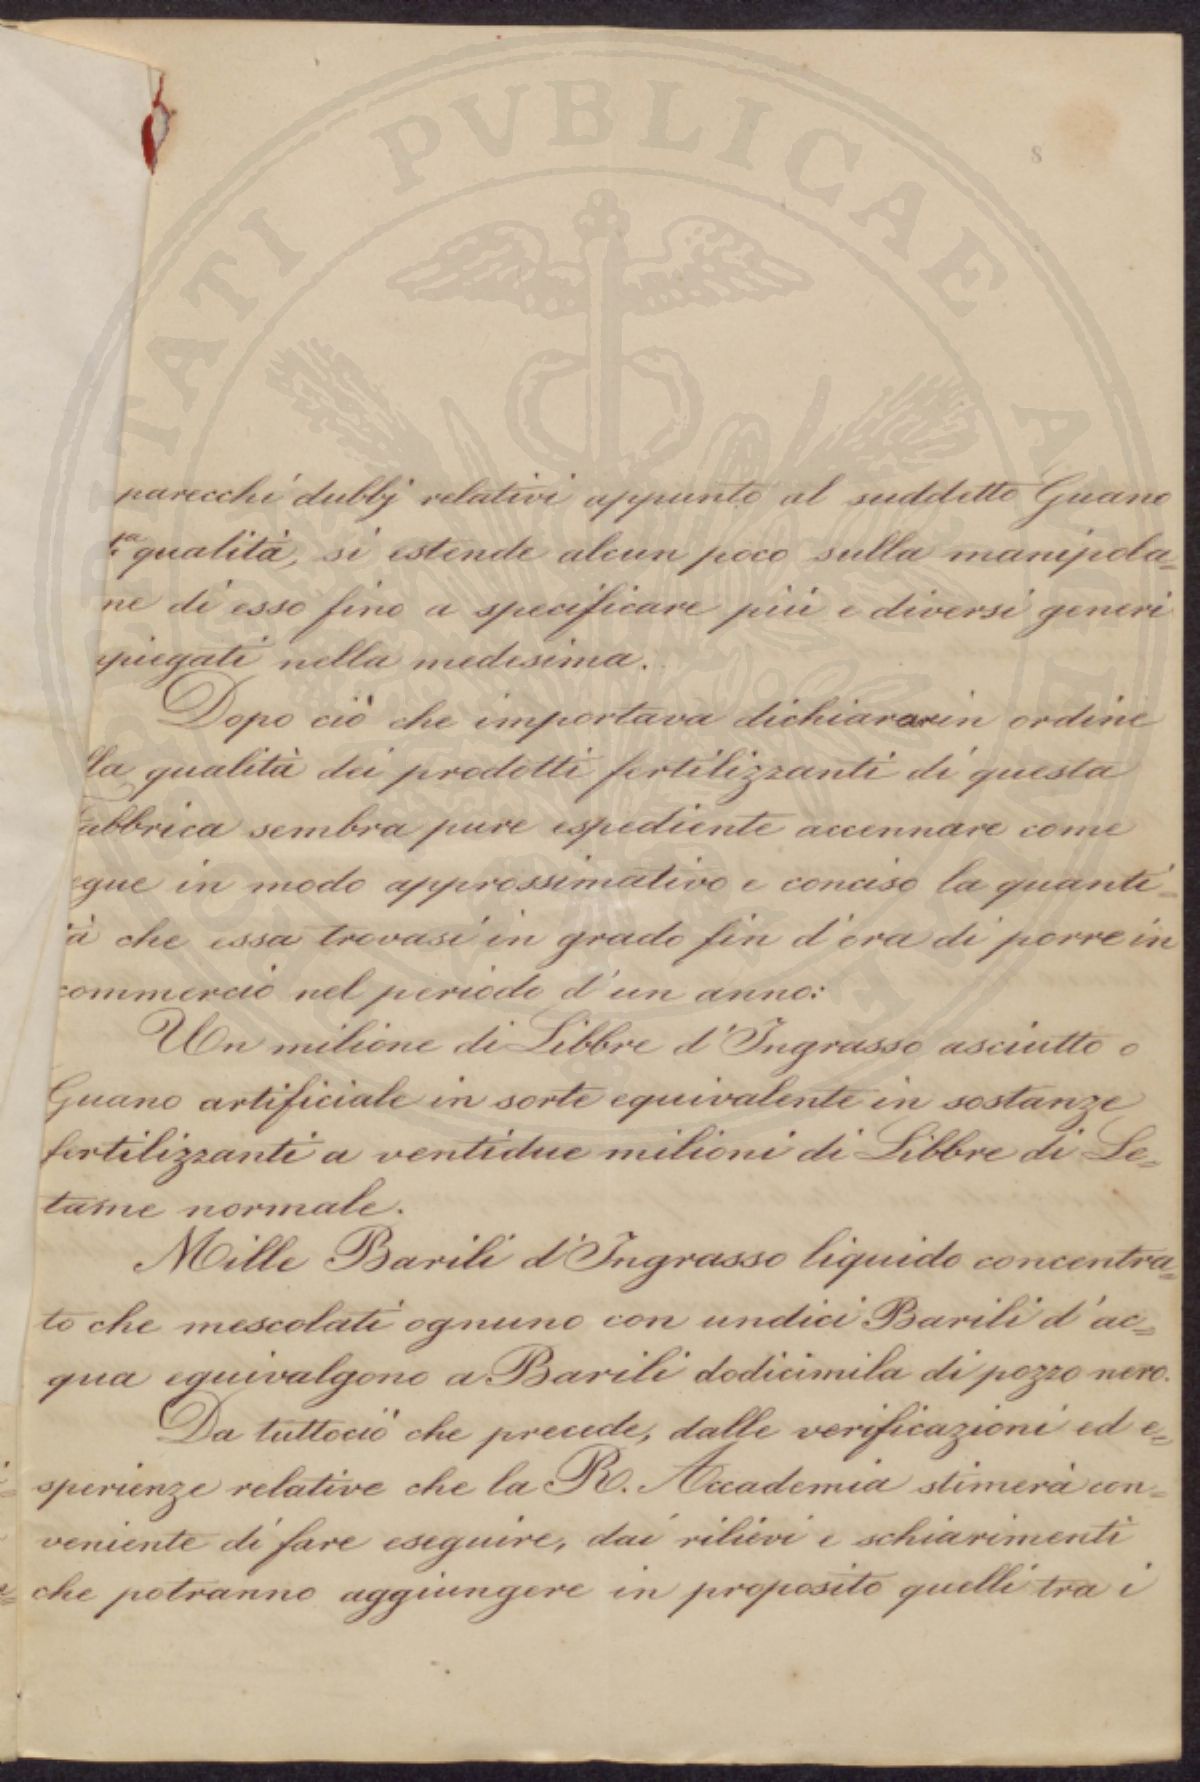 8
parecchi dubbj relativi appunto al suddetto Guano
1.a qualità, si estende alcun poco sulla manipola=
ne di esso fino a specificare più e diversi generi
piegati nella medesima.
Dopo ciò che importava dichiarare in ordine
lla qualità dei prodotti fertilizzanti di questa
abbrica sembra pure espediente accennare come
egue in modo approssimativo e conciso la quanti=
à che essa trovasi in grado fin d'ora di porre in
commercio nel periodo d'un anno:
Un milione di Libbre d'Ingrasso asciutto o
Guano artificiale in sorte equivalente in sostanze
fertilizzanti a ventidue milioni di Libbre di Le=
tame normale.
Mille Barili d'Ingrasso liquido concentra=
to che mescolati ognuno con undici Barili d'ac=
qua equivalgono a Barili dodicimila di pozzo nero.
Da tuttociò che precede, dalle verificazioni ed e=
sperienze relative che la R. Accademia stimerà con=
veniente di fare eseguire, dai rilievi e schiarimenti
che potranno aggiungere in proposito quelli tra i